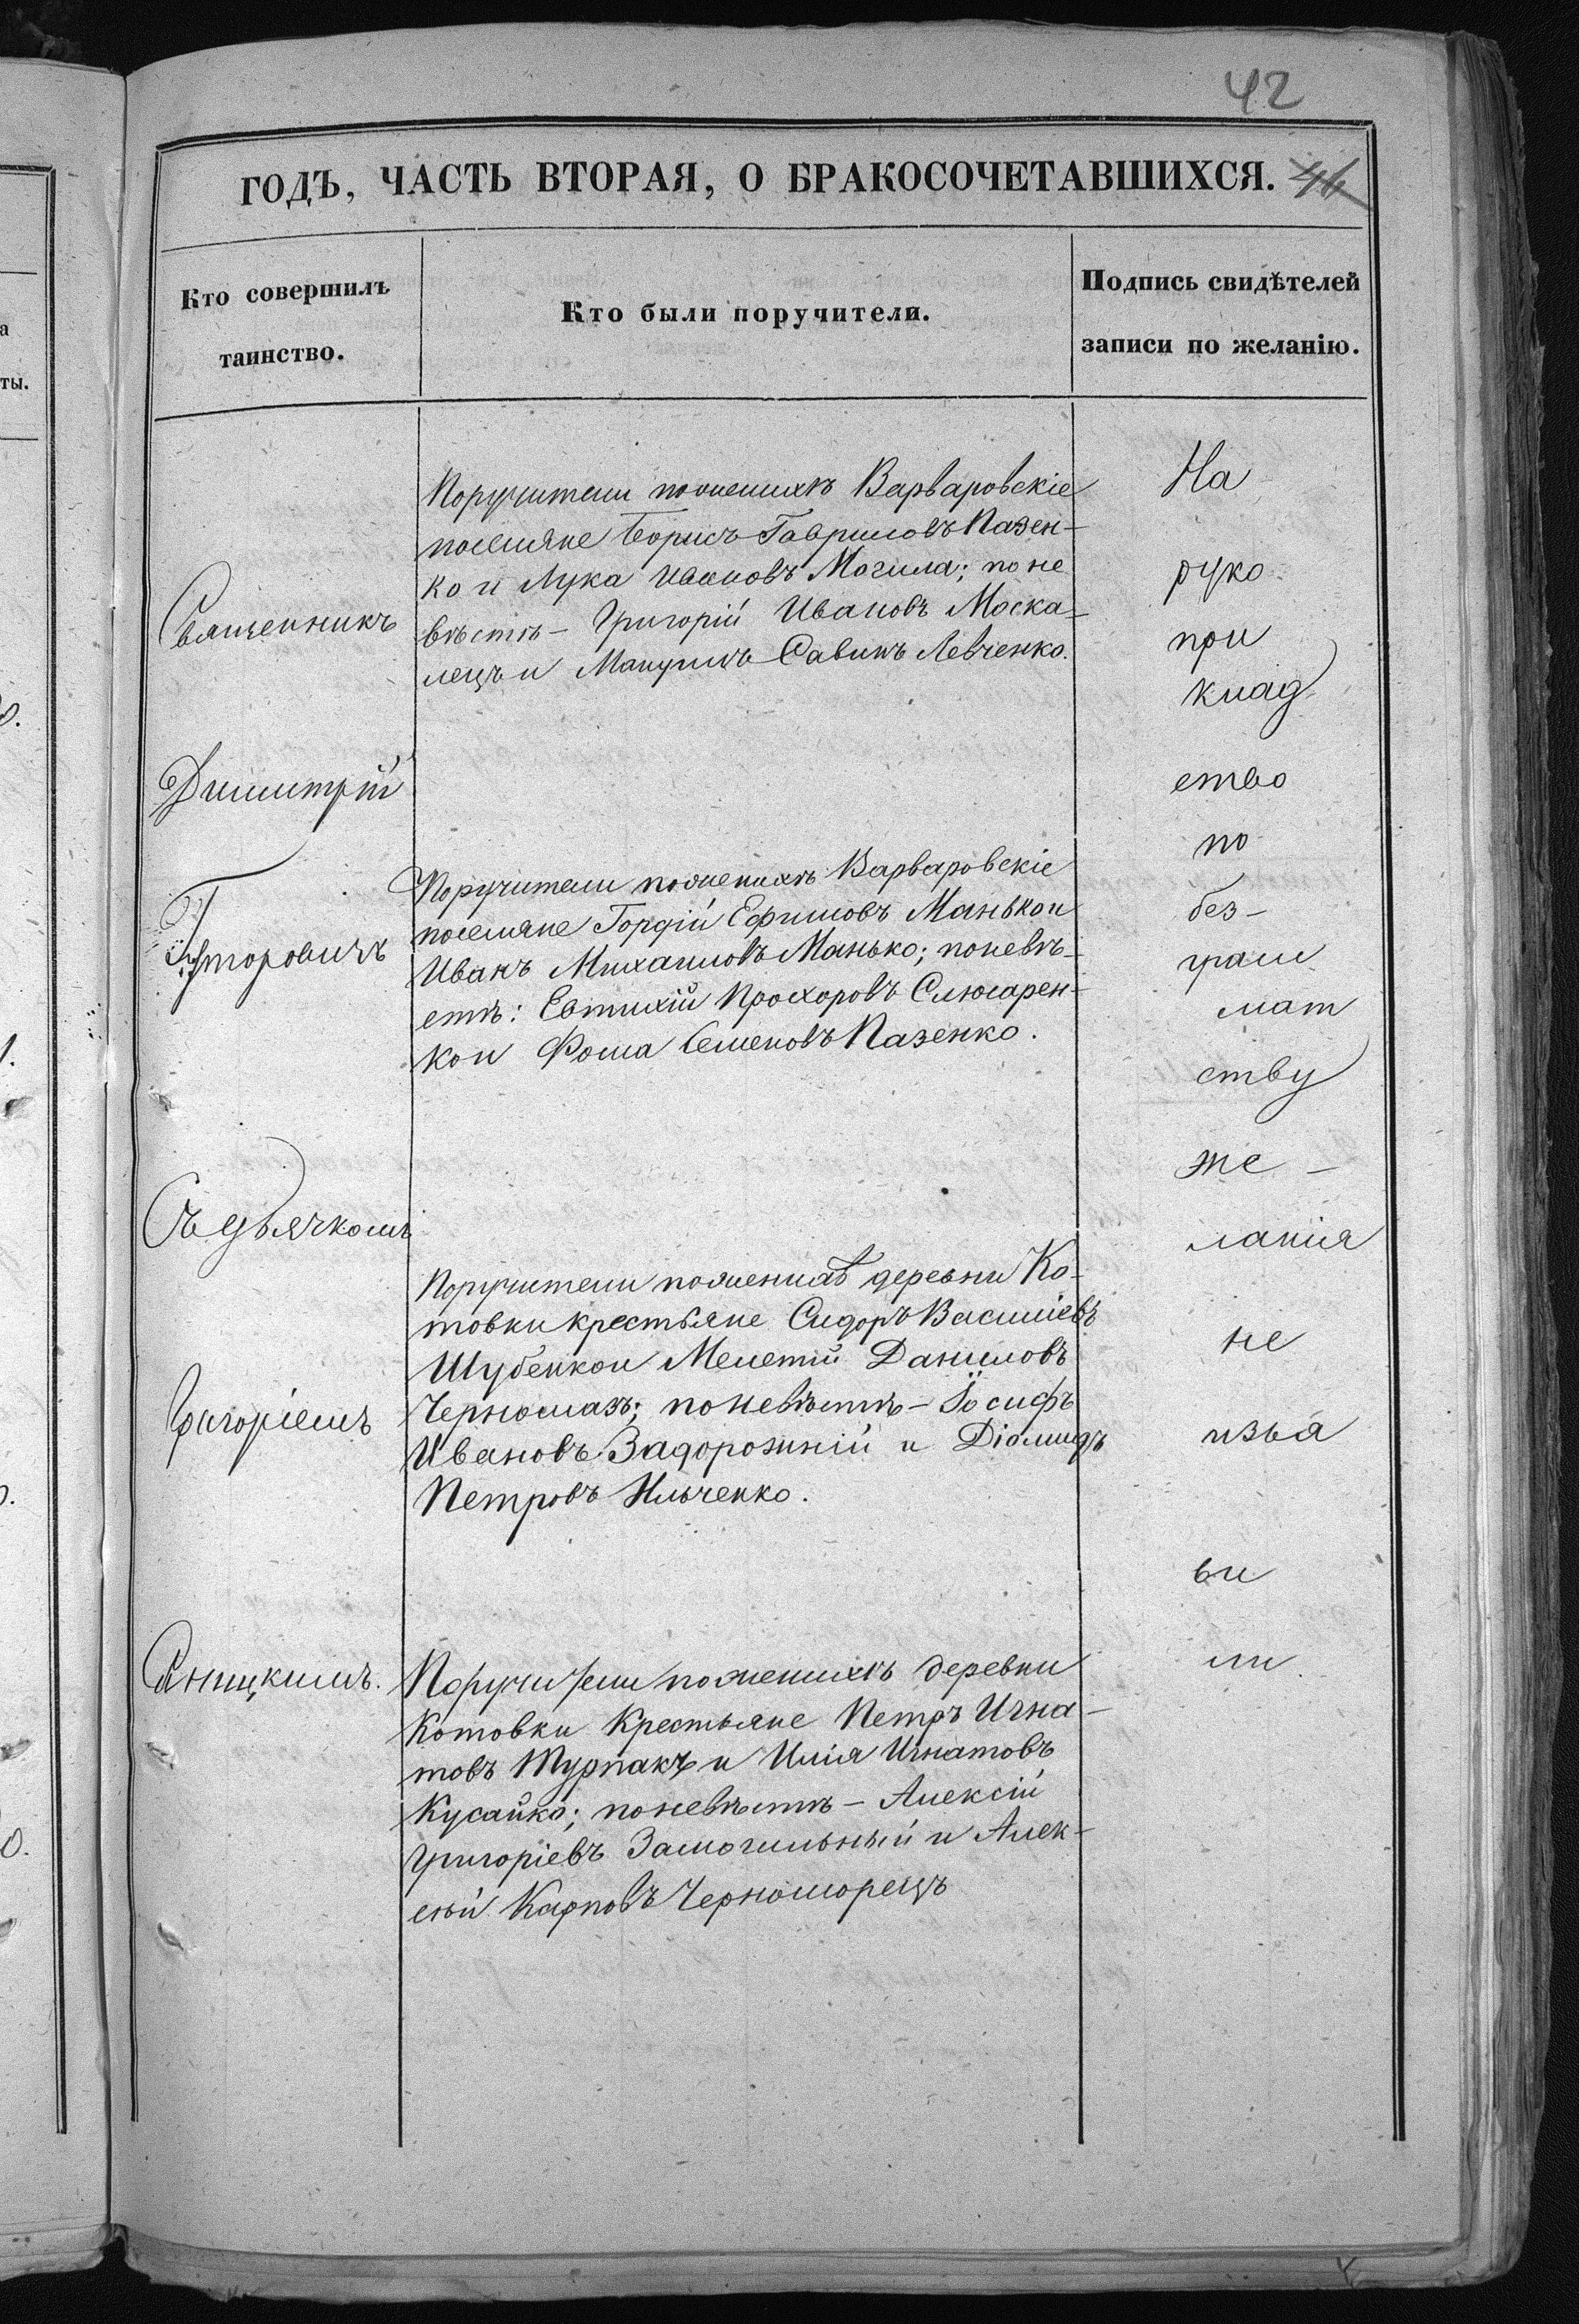 42
ГОДЪ, ЧАСТЬ ВТОРАЯ, О БРАКОСОЧЕТАВШИХСЯ.
Кто совершилъ
таинство.
Кто были поручители.
Подпись свидѣтелей
записи по желанію.
Священникъ
Димитрій
Съ дьячкомъ
Григоріемъ
Поручители по женихѣ Варваровскіе
поселяне Борисъ Гавриловъ Пазен-
ко и Лука Ивановъ Могила; по не
вѣстѣ – Григорій Ивановъ Моска-
лецъ и Мануилъ Савинъ Левченко.
Поручители по женихѣ Варваровскіе
поселяне Гордій Ефимовъ Манько и
Иванъ Михаиловъ Манько; по невѣ-
стѣ: Евтихій Прохоровъ Слюсарен-
ко и Фома Семеновъ Пазенко.
Поручители по женихѣ деревни Ко-
товки крестьяне Сидоръ Василіевъ
Шубенко и Мелетій Даниловъ
Черномазъ; по невѣстѣ – Іосифъ
Ивановъ Задорожній и Діомидъ
Петровъ Ильченко.
Поручители по женихѣ деревни
Котовки крестьяне Петръ Игна-
товъ Турпакъ и Илія Игнатовъ
Кусайко; по невѣстѣ – Алексій
Григоріевъ Замогильный и Алек-
сѣй Карповъ Черноморецъ
На
руко
при
клад
ство
по
без-
грам
мат
ству
же –
ланія
не
изъа
ви
ли